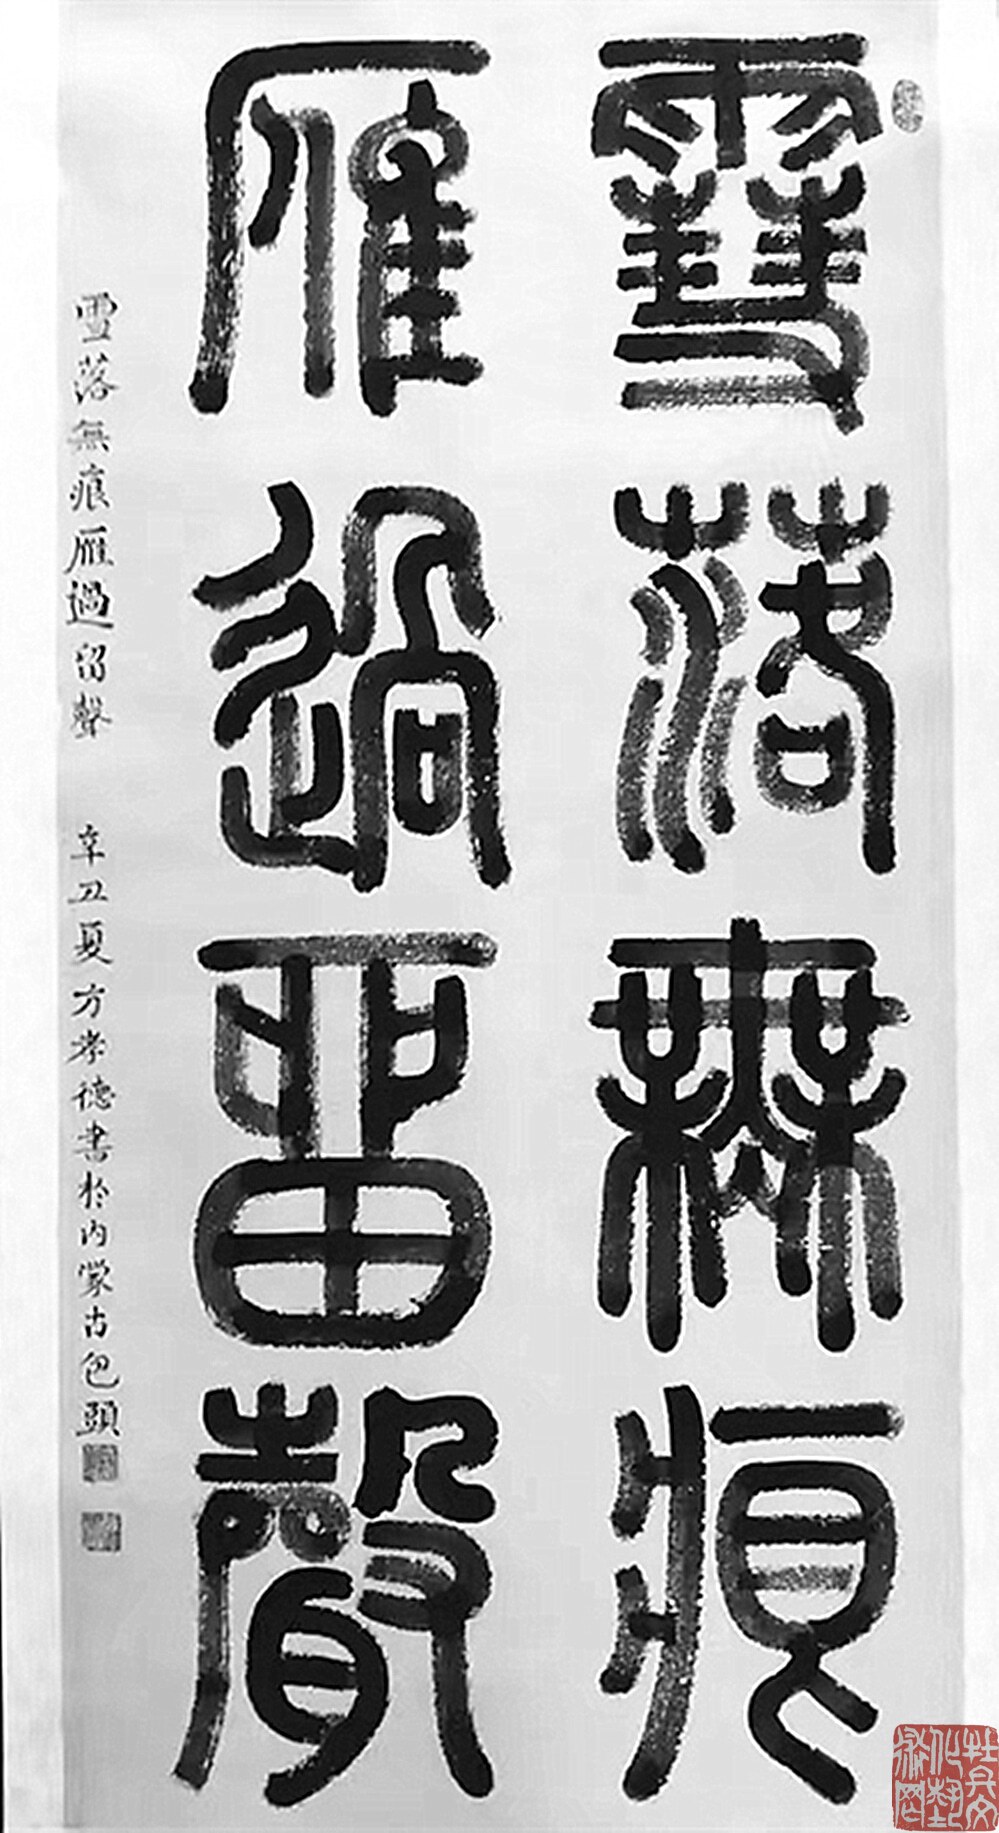 雪落無痕
雁過留聲
雪落無痕雁過留聲 辛丑夏方孝德書於内蒙古包頭